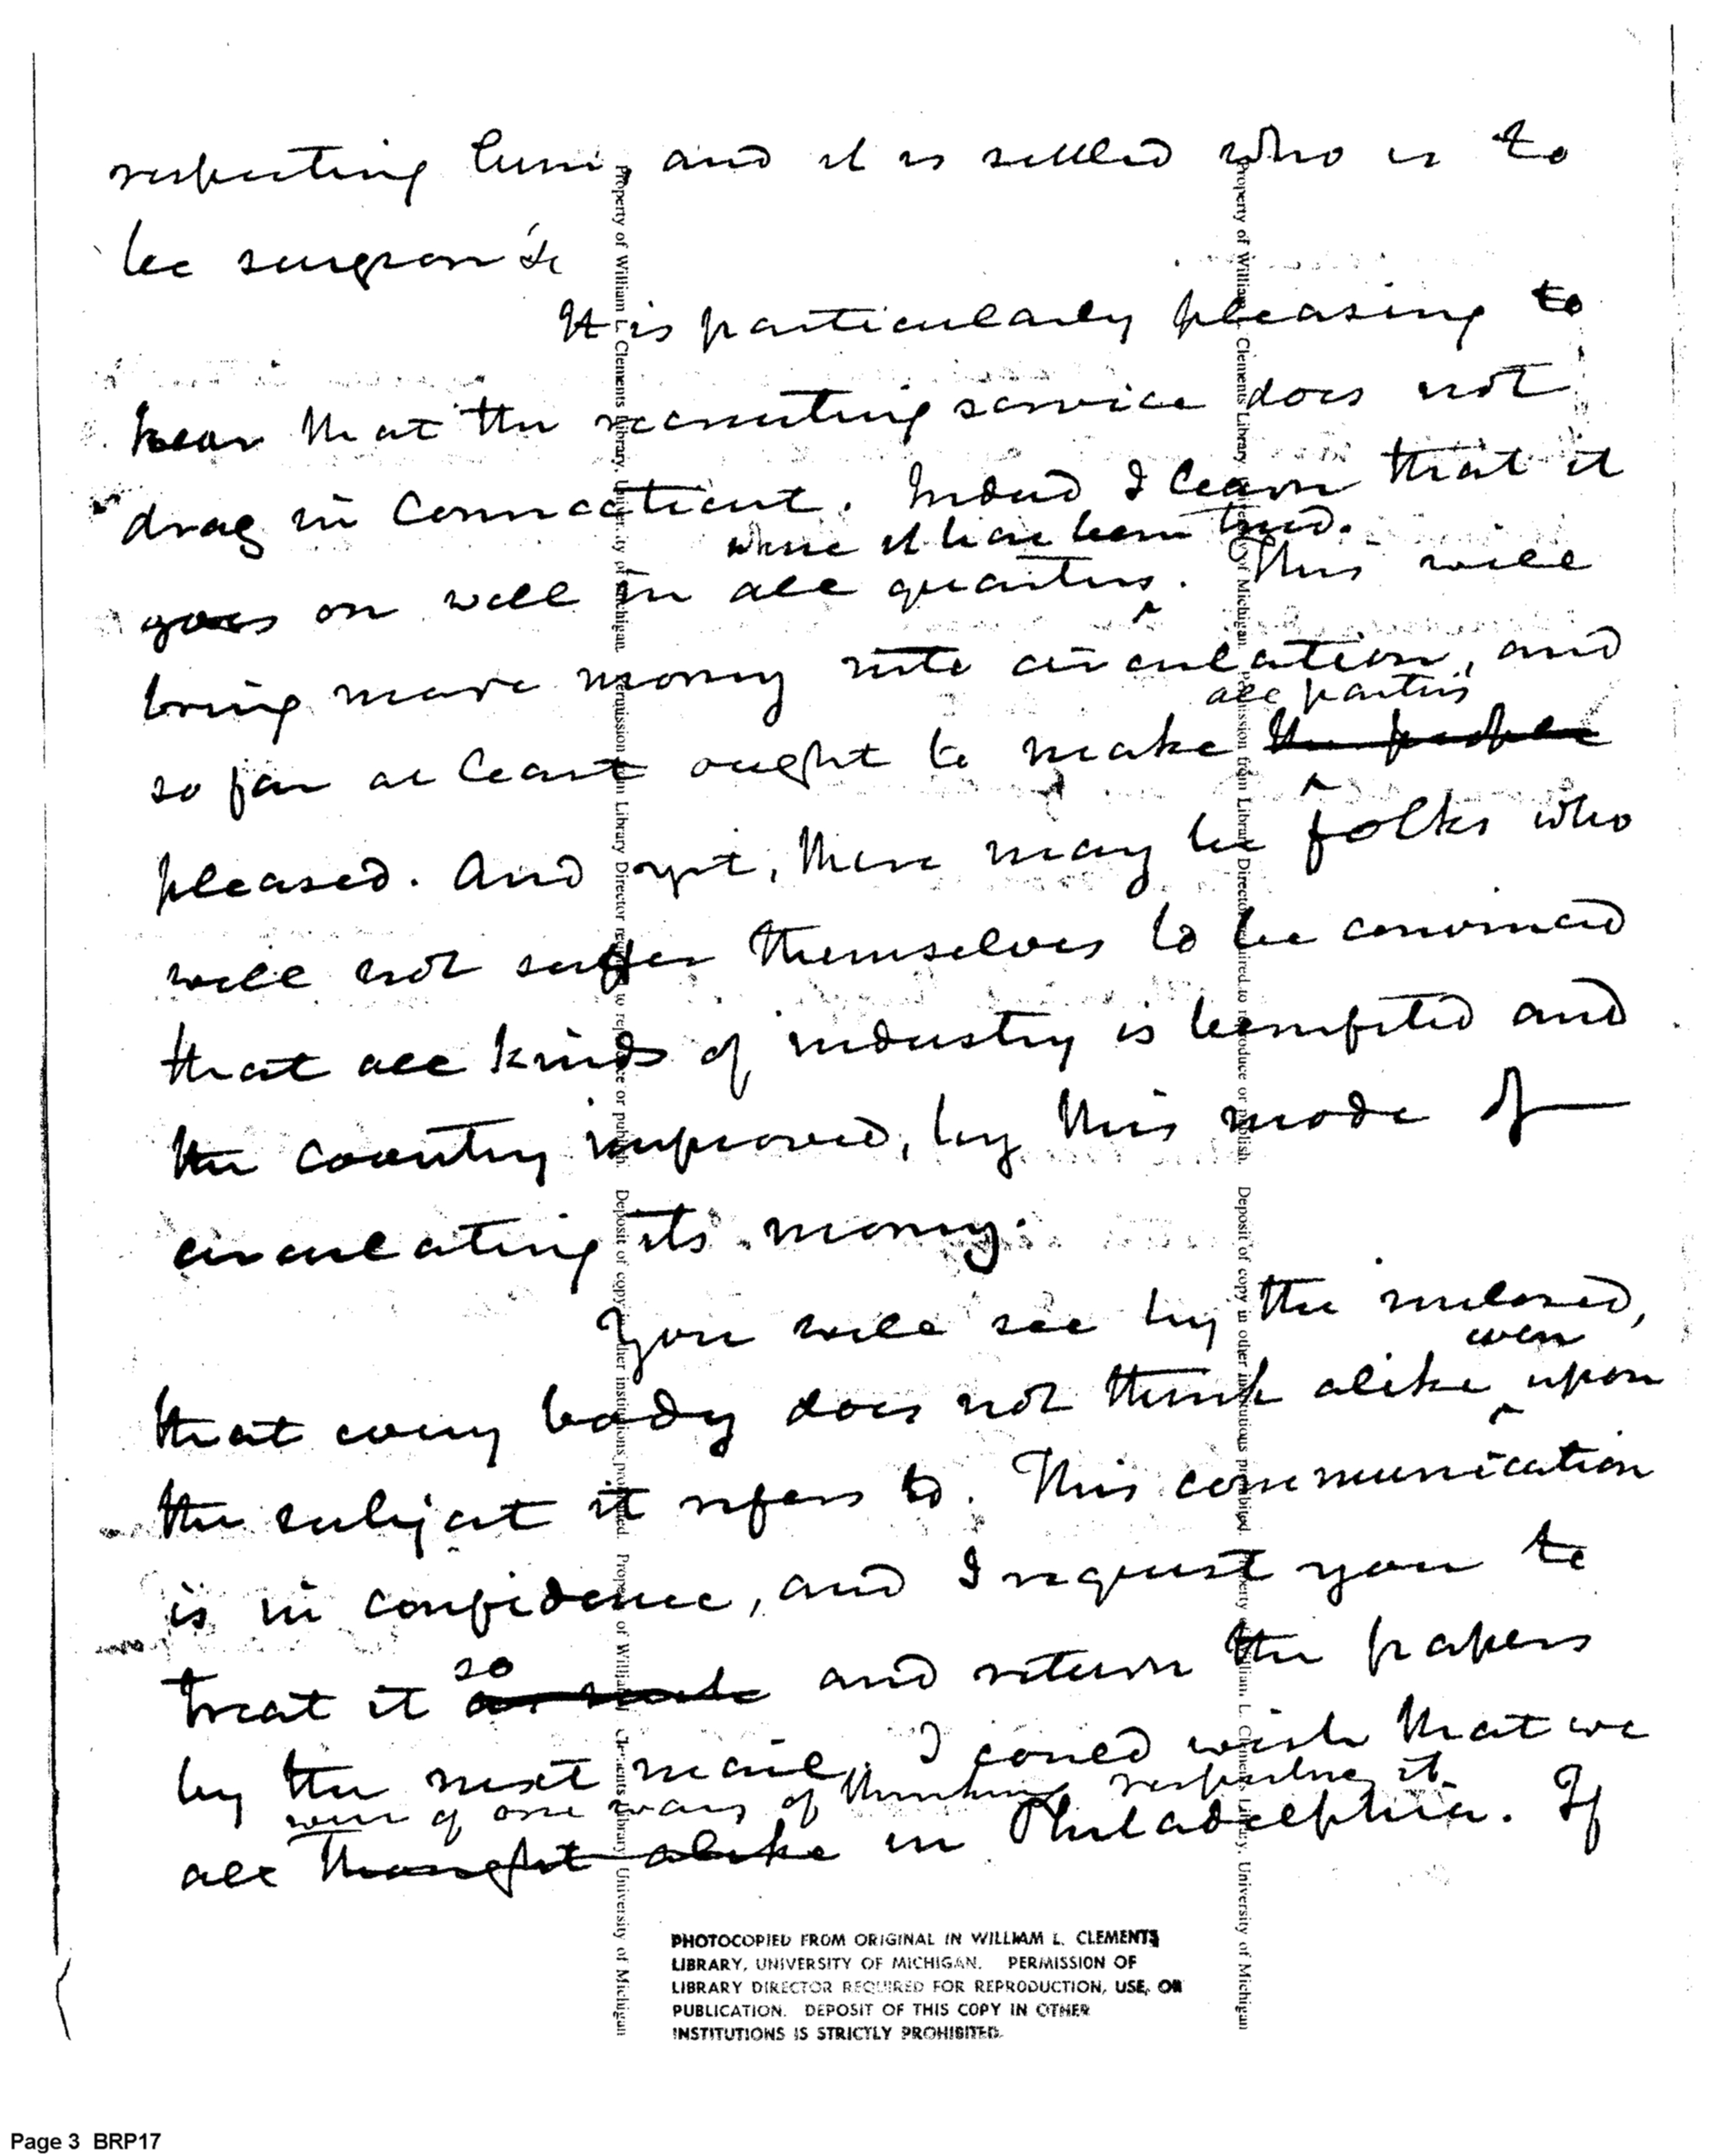 respecting him, and it is settled who is to
be surgeon &c
It is particularly pleasing to
hear that the recruiting service does not
drag in Connecticut. Indeed I learn that it
where it has been tried.
goes on well in all quarters. This will
bring more money into circulation, and
all parties
so far at least ought to make the people
pleased. And yet, there may be folks who
will not suffer themselves to be convinced
that all kinds of industry is benefited and
the country improved, by this mode of
circulating its money.
You will see by the inclosed,
even
that every body does not think alike upon
the subject it refers to. This communication
is in confidence, and I request you to
so
treat it as such and return the papers
by the next mail. I could wish that we
were of one way of thinking respecting it
all thought alike in Philadelphia. If
Property of William L. Clements Library, University of Michigan. Permission from Library Director required to reproduce or publish. Deposit of copy in other institutions prohibited. Property of William L. Clements Library, University of Michigan
Property of William L. Clements Library, University of Michigan. Permission from Library Director required to reproduce or publish. Deposit of copy in other institutions prohibited. Property of William L. Clements Library, University of Michigan
PHOTOCOPIED FROM ORIGINAL IN WILLIAM L. CLEMENTS
LIBRARY, UNIVERSITY OF MICHIGAN. PERMISSION OF
LIBRARY DIRECTOR REQUIRED FOR REPRODUCTION, USE, OR
PUBLICATION. DEPOSIT OF THIS COPY IN OTHER
INSTITUTIONS IS STRICTLY PROHIBITED.
Page 3 BRP17